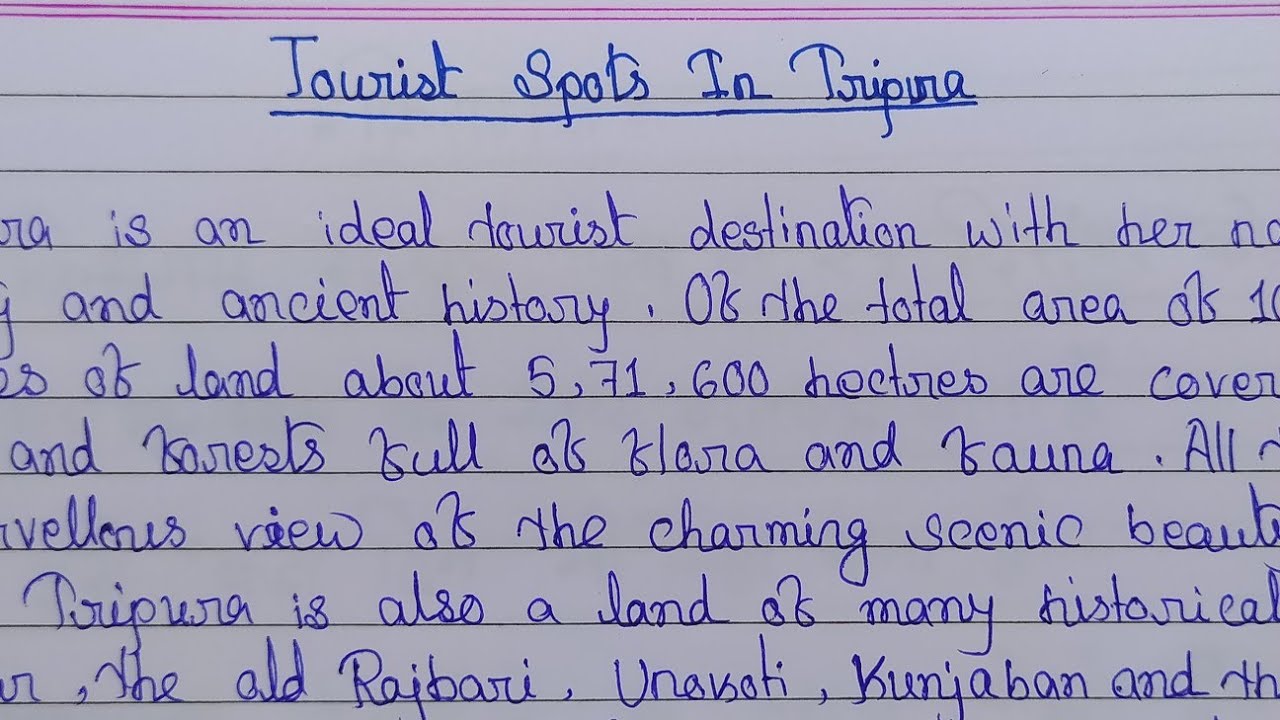 Tourist Spots In Tripura
ra is an ideal tourist destination with her na
y and ancient history. Of the total area of 10
es of land about 5,71,600 hectres are cover
and forests full of flora and fauna. All
rvellous view of the charming scenic beaut
Tripura is also a land of many historical
ur, the old Rajbari, Unakoti, Kunjaban and th